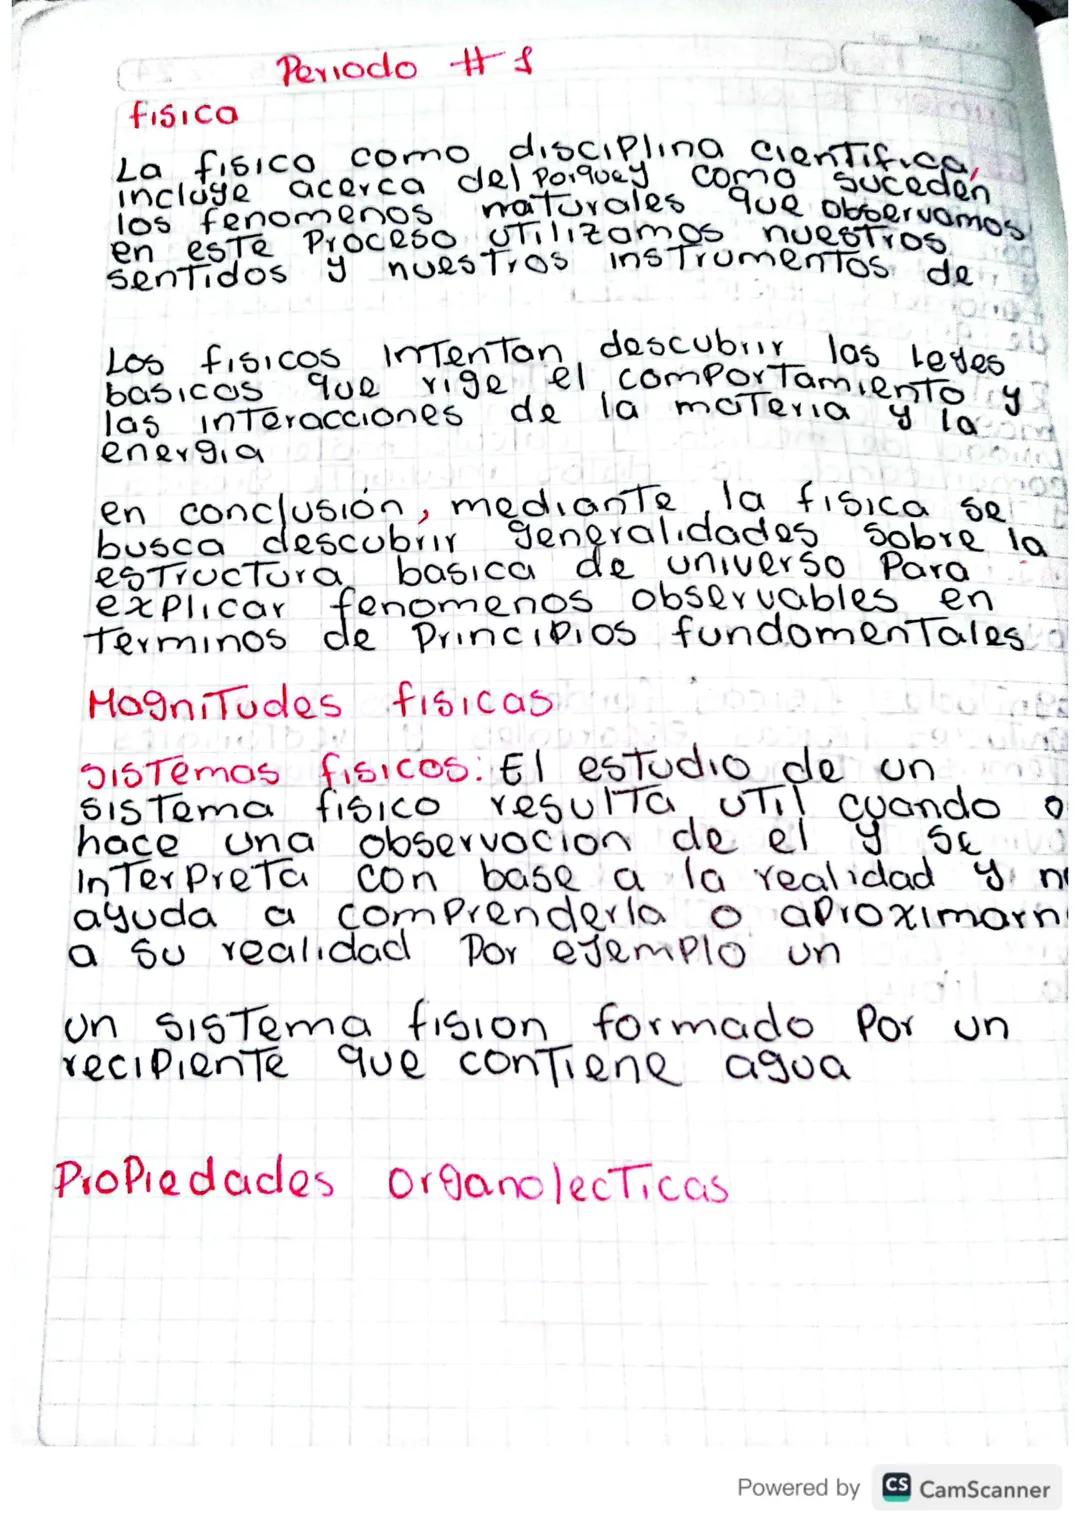 Periodo # 1
fisica
La fisico como disciplina cientifica,
incluye acerca del porquey como suceden
los fenomenos naturales que observamos
en este proceso utilizamos nuestros
sentidos y nuestros instrumentos de
Los fisicos intentan descubrir las leyes
basicas que rige el comportamiento y
las interacciones de la materia y la
energia
en conclusión, mediante la fisica se
busca descubrir generalidades sobre la
estructura basica de universo para
explicar fenomenos observables en
terminos de principios fundamentales
Magnitudes fisicas
sistemas fisicos: El estudio de un
sistema fisico resulta util cuando
hace una observacion de el y se
interpreta con base a la realidad y
ayuda a comprenderla o aproximarn
a su realidad por ejemplo un
un sistema fision formado por un
recipiente que contiene agua
Propiedades organolecticas
Powered by CS CamScanner